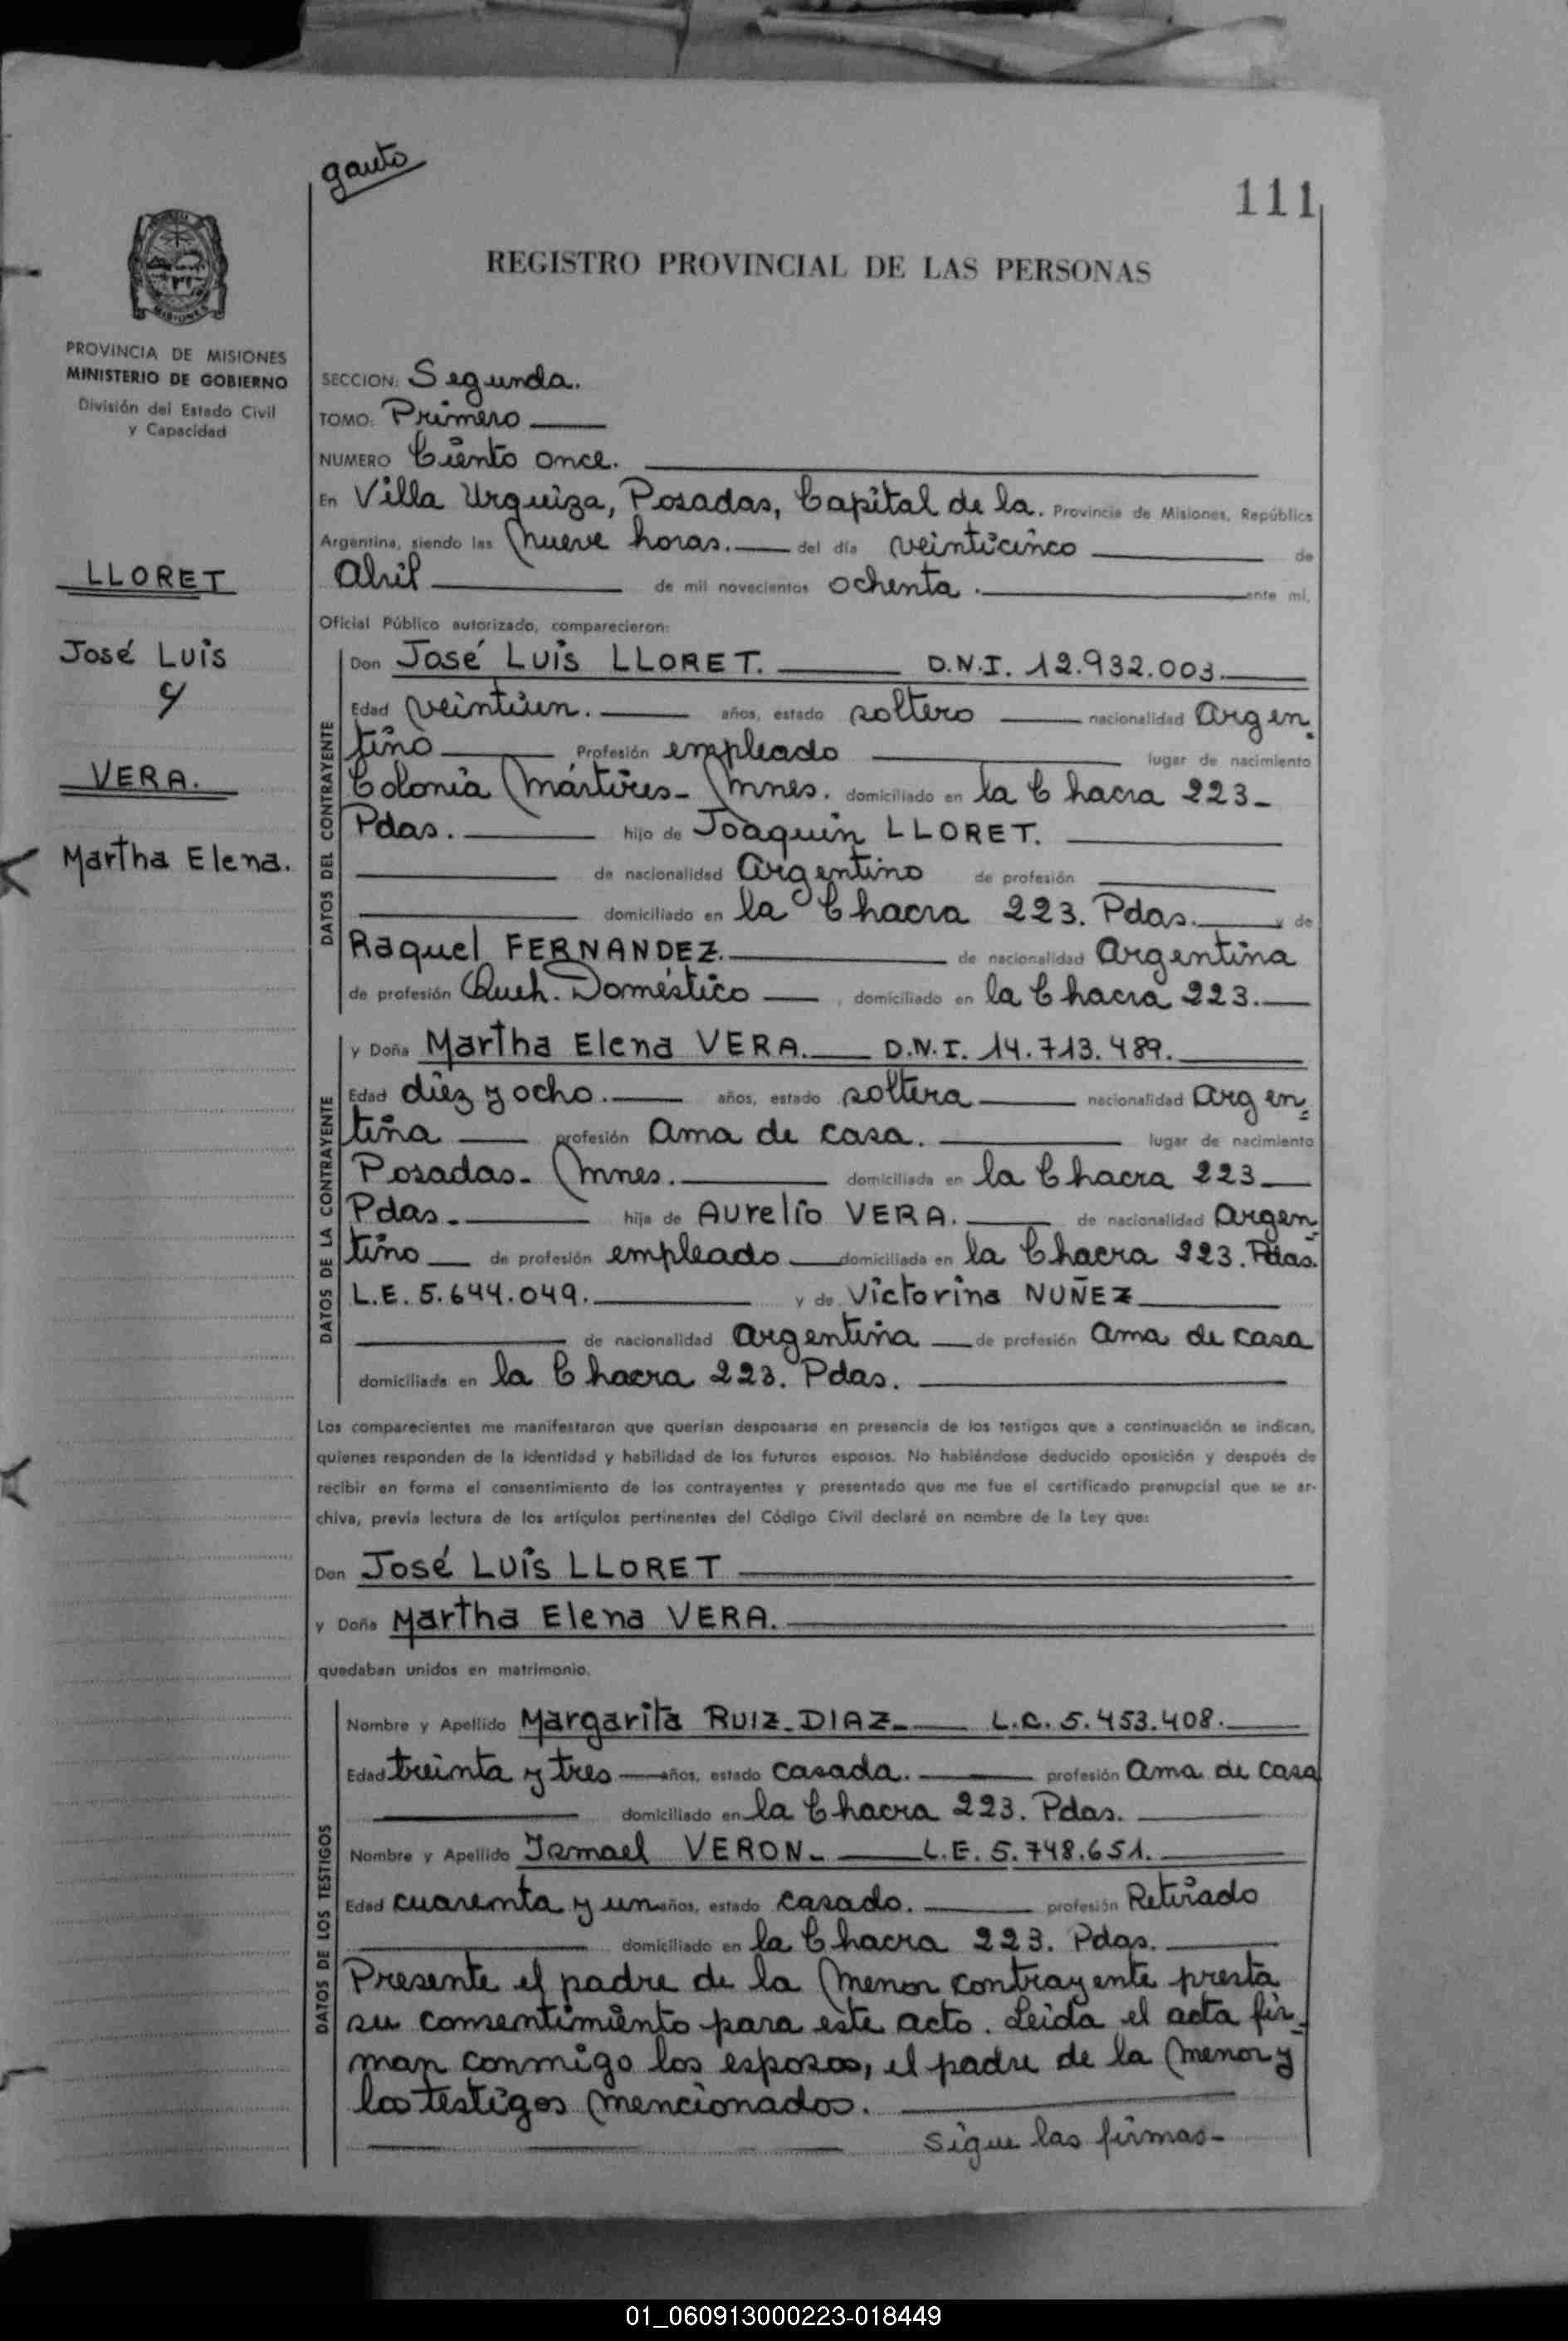 gauto
111
REGISTRO PROVINCIAL DE LAS PERSONAS
MISIONES
PROVINCIA DE MISIONES
MINISTERIO DE GOBIERNO
División del Estado Civil
y Capacidad
LLORET
José Luis
y
VERA.
Martha Elena.
SECCION: Segunda.
TOMO: Primero
NUMERO Ciento once.
En Villa Urquiza, Posadas, Capital de la. Provincia de Misiones, República
Argentina, siendo las nueve horas. del día veinticinco de
Abril de mil novecientos ochenta. ante mí,
Oficial Público autorizado, comparecieron:
DATOS DEL CONTRAYENTE
Don José Luis LLORET. D.N.I. 12.932.003.
Edad veintiun. años, estado soltero nacionalidad Argen-
tino Profesión empleado lugar de nacimiento
Colonia Mártires- Mnes. domiciliado en la Chacra 223-
Pdas. hijo de Joaquin LLORET.
de nacionalidad Argentino de profesión
domiciliado en la Chacra 223. Pdas. y de
Raquel FERNANDEZ. de nacionalidad Argentina
de profesión Queh. Doméstico , domiciliado en la Chacra 223.
DATOS DE LA CONTRAYENTE
y Doña Martha Elena VERA. D.N.I. 14.713.489.
Edad diez y ocho. años, estado soltera nacionalidad Argen=
tina profesión Ama de casa. lugar de nacimiento
Posadas- Mnes. domiciliada en la Chacra 223
Pdas. hija de Aurelio VERA. de nacionalidad Argen=
tino de profesión empleado domiciliada en la Chacra 223. Pdas.
L.E. 5.644.049. y de Victorina NUÑEZ
de nacionalidad Argentina de profesión Ama de casa
domiciliada en la Chacra 223. Pdas.
Los comparecientes me manifestaron que querían desposarse en presencia de los testigos que a continuación se indican,
quienes responden de la identidad y habilidad de los futuros esposos. No habiéndose deducido oposición y después de
recibir en forma el consentimiento de los contrayentes y presentado que me fue el certificado prenupcial que se ar-
chiva, previa lectura de los artículos pertinentes del Código Civil declaré en nombre de la Ley que:
Don José Luis LLORET
y Doña Martha Elena VERA.
quedaban unidos en matrimonio.
DATOS DE LOS TESTIGOS
Nombre y Apellido Margarita RUIZ-DIAZ- L.C. 5.453.408.
Edad treinta y tres años, estado casada. profesión Ama de casa
domiciliado en la Chacra 223. Pdas.
Nombre y Apellido Ismael VERON- L.E. 5.748.651.
Edad cuarenta y un años, estado casado. profesión Retirado
domiciliado en la Chacra 223. Pdas.
Presente el padre de la menor contrayente presta
su consentimiento para este acto. Leida el acta fir-
man conmigo los esposos, el padre de la menor y
los testigos mencionados.
Sigue las firmas-
01_060913000223-018449